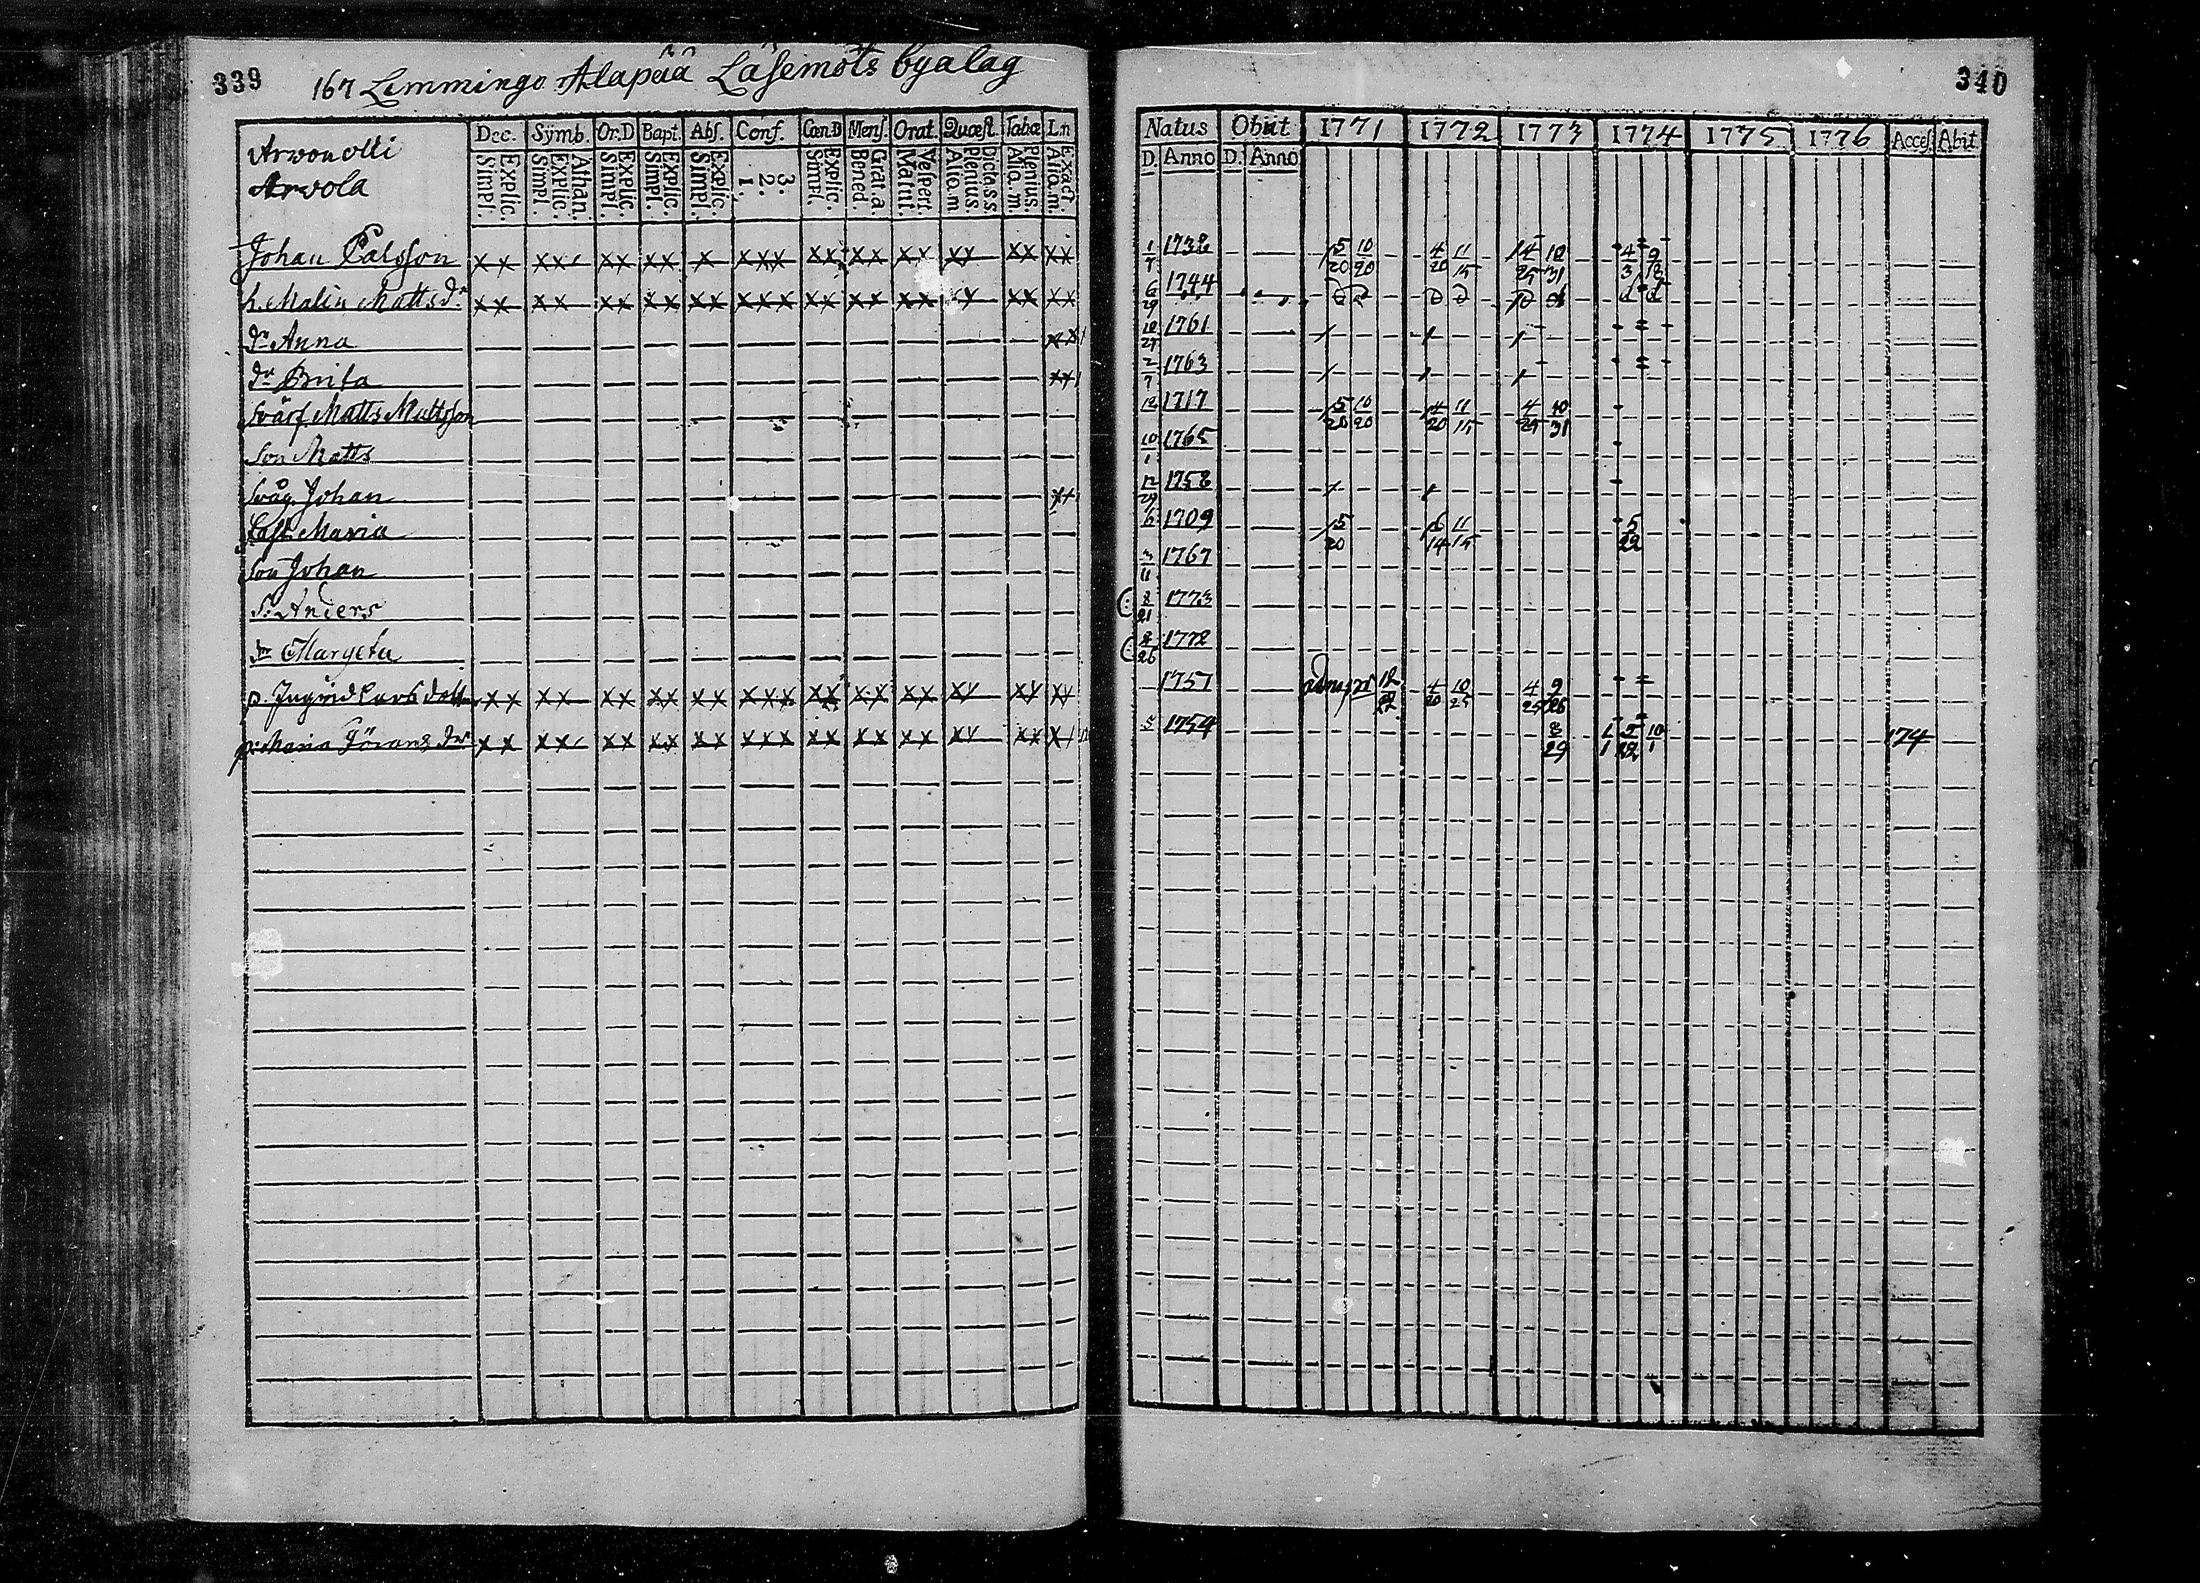 339
167 Lemmingo Alapää Läsemöts byalag
Dec. Symb. Or.D Bapt. Abs. Conf. Cœn.D Mens. Orat. Quæst. Tabæ L.n
Explic. Simpl. Athan. Explic. Simpl. Explic. Simpl. Explic. Simpl. Explic. Simpl. 3. 2. 1. Explic. Simpl. Grat.a. Bened. Vespert. Matut. Dicta.s.s. Plenius. Aliq.m Plenius. Aliq.m. Exact. Aliq.m.
Arvonolli
Arvola
Johan Pålsson
h. Malin Mattsdr
dr Anna
dr Brita
Svärf Matts Mattsson
Son Matts
Svåg Johan
Maria
Son Johan
S: Anders
dr Margeta
p. Ingrid Larsdott
p: Maria Görans dr
340
Natus Obiit 1771 1772 1773 1774 1775 1776 Acces. Abit
D. Anno D. Anno
1/7 1738 5/20 10/20 4/20 11/15 4/25 10/31 4/3 9/18
6/29 1744
10/27 1761
2/7 1763
12 1717 5/20 10/20 4/20 11/15 4/25 10/31
10/1 1765
12/29 1758
6 1709 5/20 6/14 11/15 5/22
3/11 1767
8/21 1773
2/26 1772
1751 12/22 4/20 10/25 4/25 9/26
5 1754 8/29 1/1 5/22 10/1 174